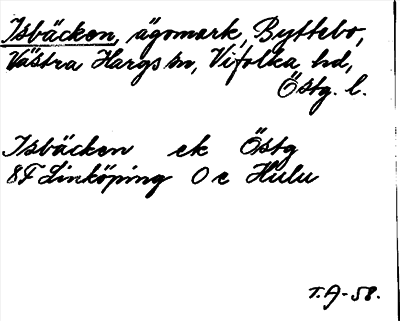 Isbäcken, ägomark, Byttebo,
Västra Hargs sn, Vifolka hd,
Östg. l.
Isbäcken ek Östg
8F Linköping 0 e Hulu
T.A-58.